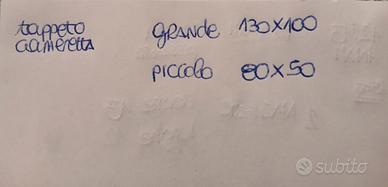 tappeto GRANDE 130X100
CAMERETTA
PICCOLO 80X50
subito